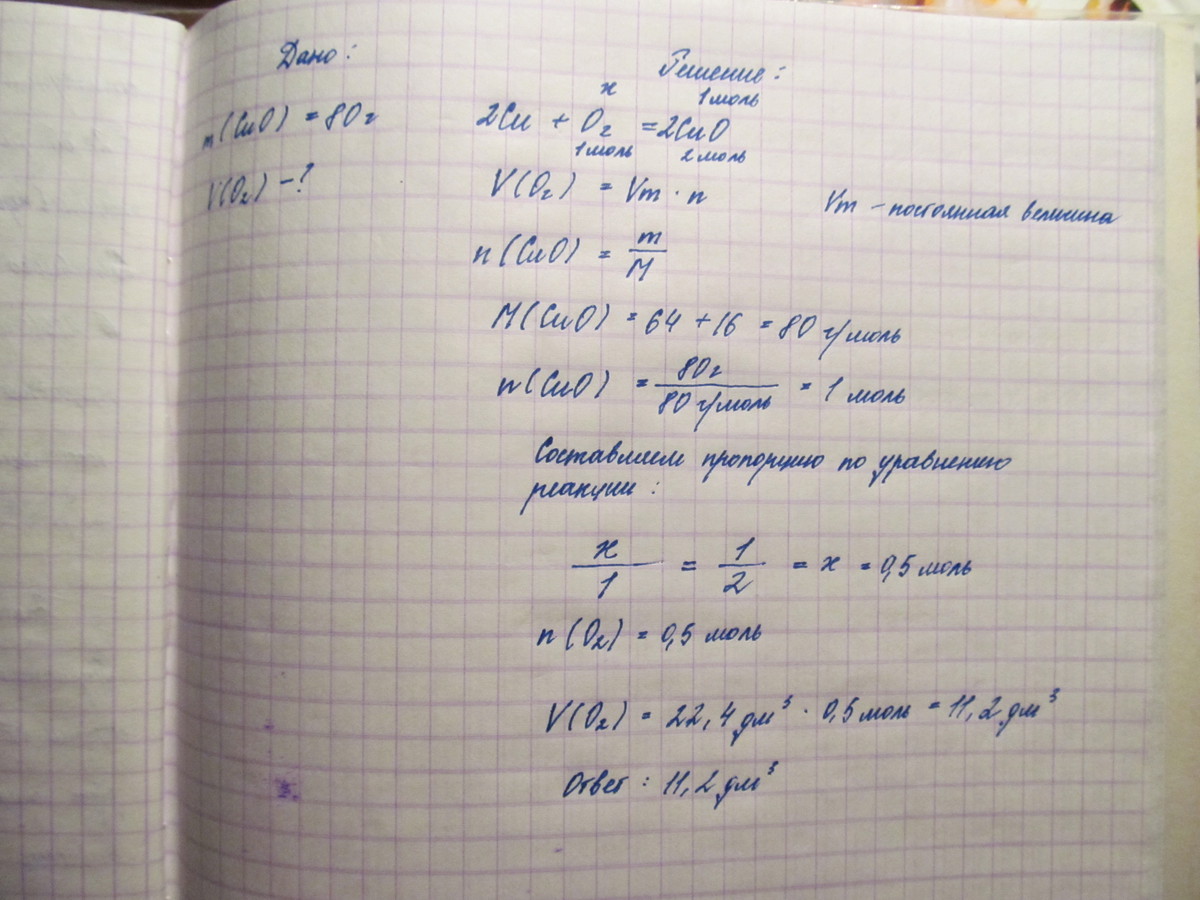 Дано:
Решение:
m(CuO) = 80г
x 1моль
2Cu + O₂ = 2CuO
1моль 2моль
V(O₂) - ?
V(O₂) = Vm · n
Vm - постоянная величина
n(CuO) = m/M
M(CuO) = 64 + 16 = 80 г/моль
n(CuO) = 80г/80 г/моль = 1 моль
Составляем пропорцию по уравнению
реакции:
x/1 = 1/2 = x = 0,5 моль
n(O₂) = 0,5 моль
V(O₂) = 22,4 дм³ · 0,5 моль = 11,2 дм³
Ответ: 11,2 дм³